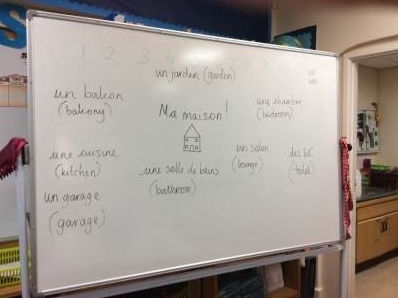 1 2 3 4
un jardin (garden)
un balcon
(balcony)
Ma maison!
une chambre
(bedroom)
une cuisine
(kitchen)
une salle de bains
(bathroom)
un salon
(lounge)
des WC
(toilet)
un garage
(garage)